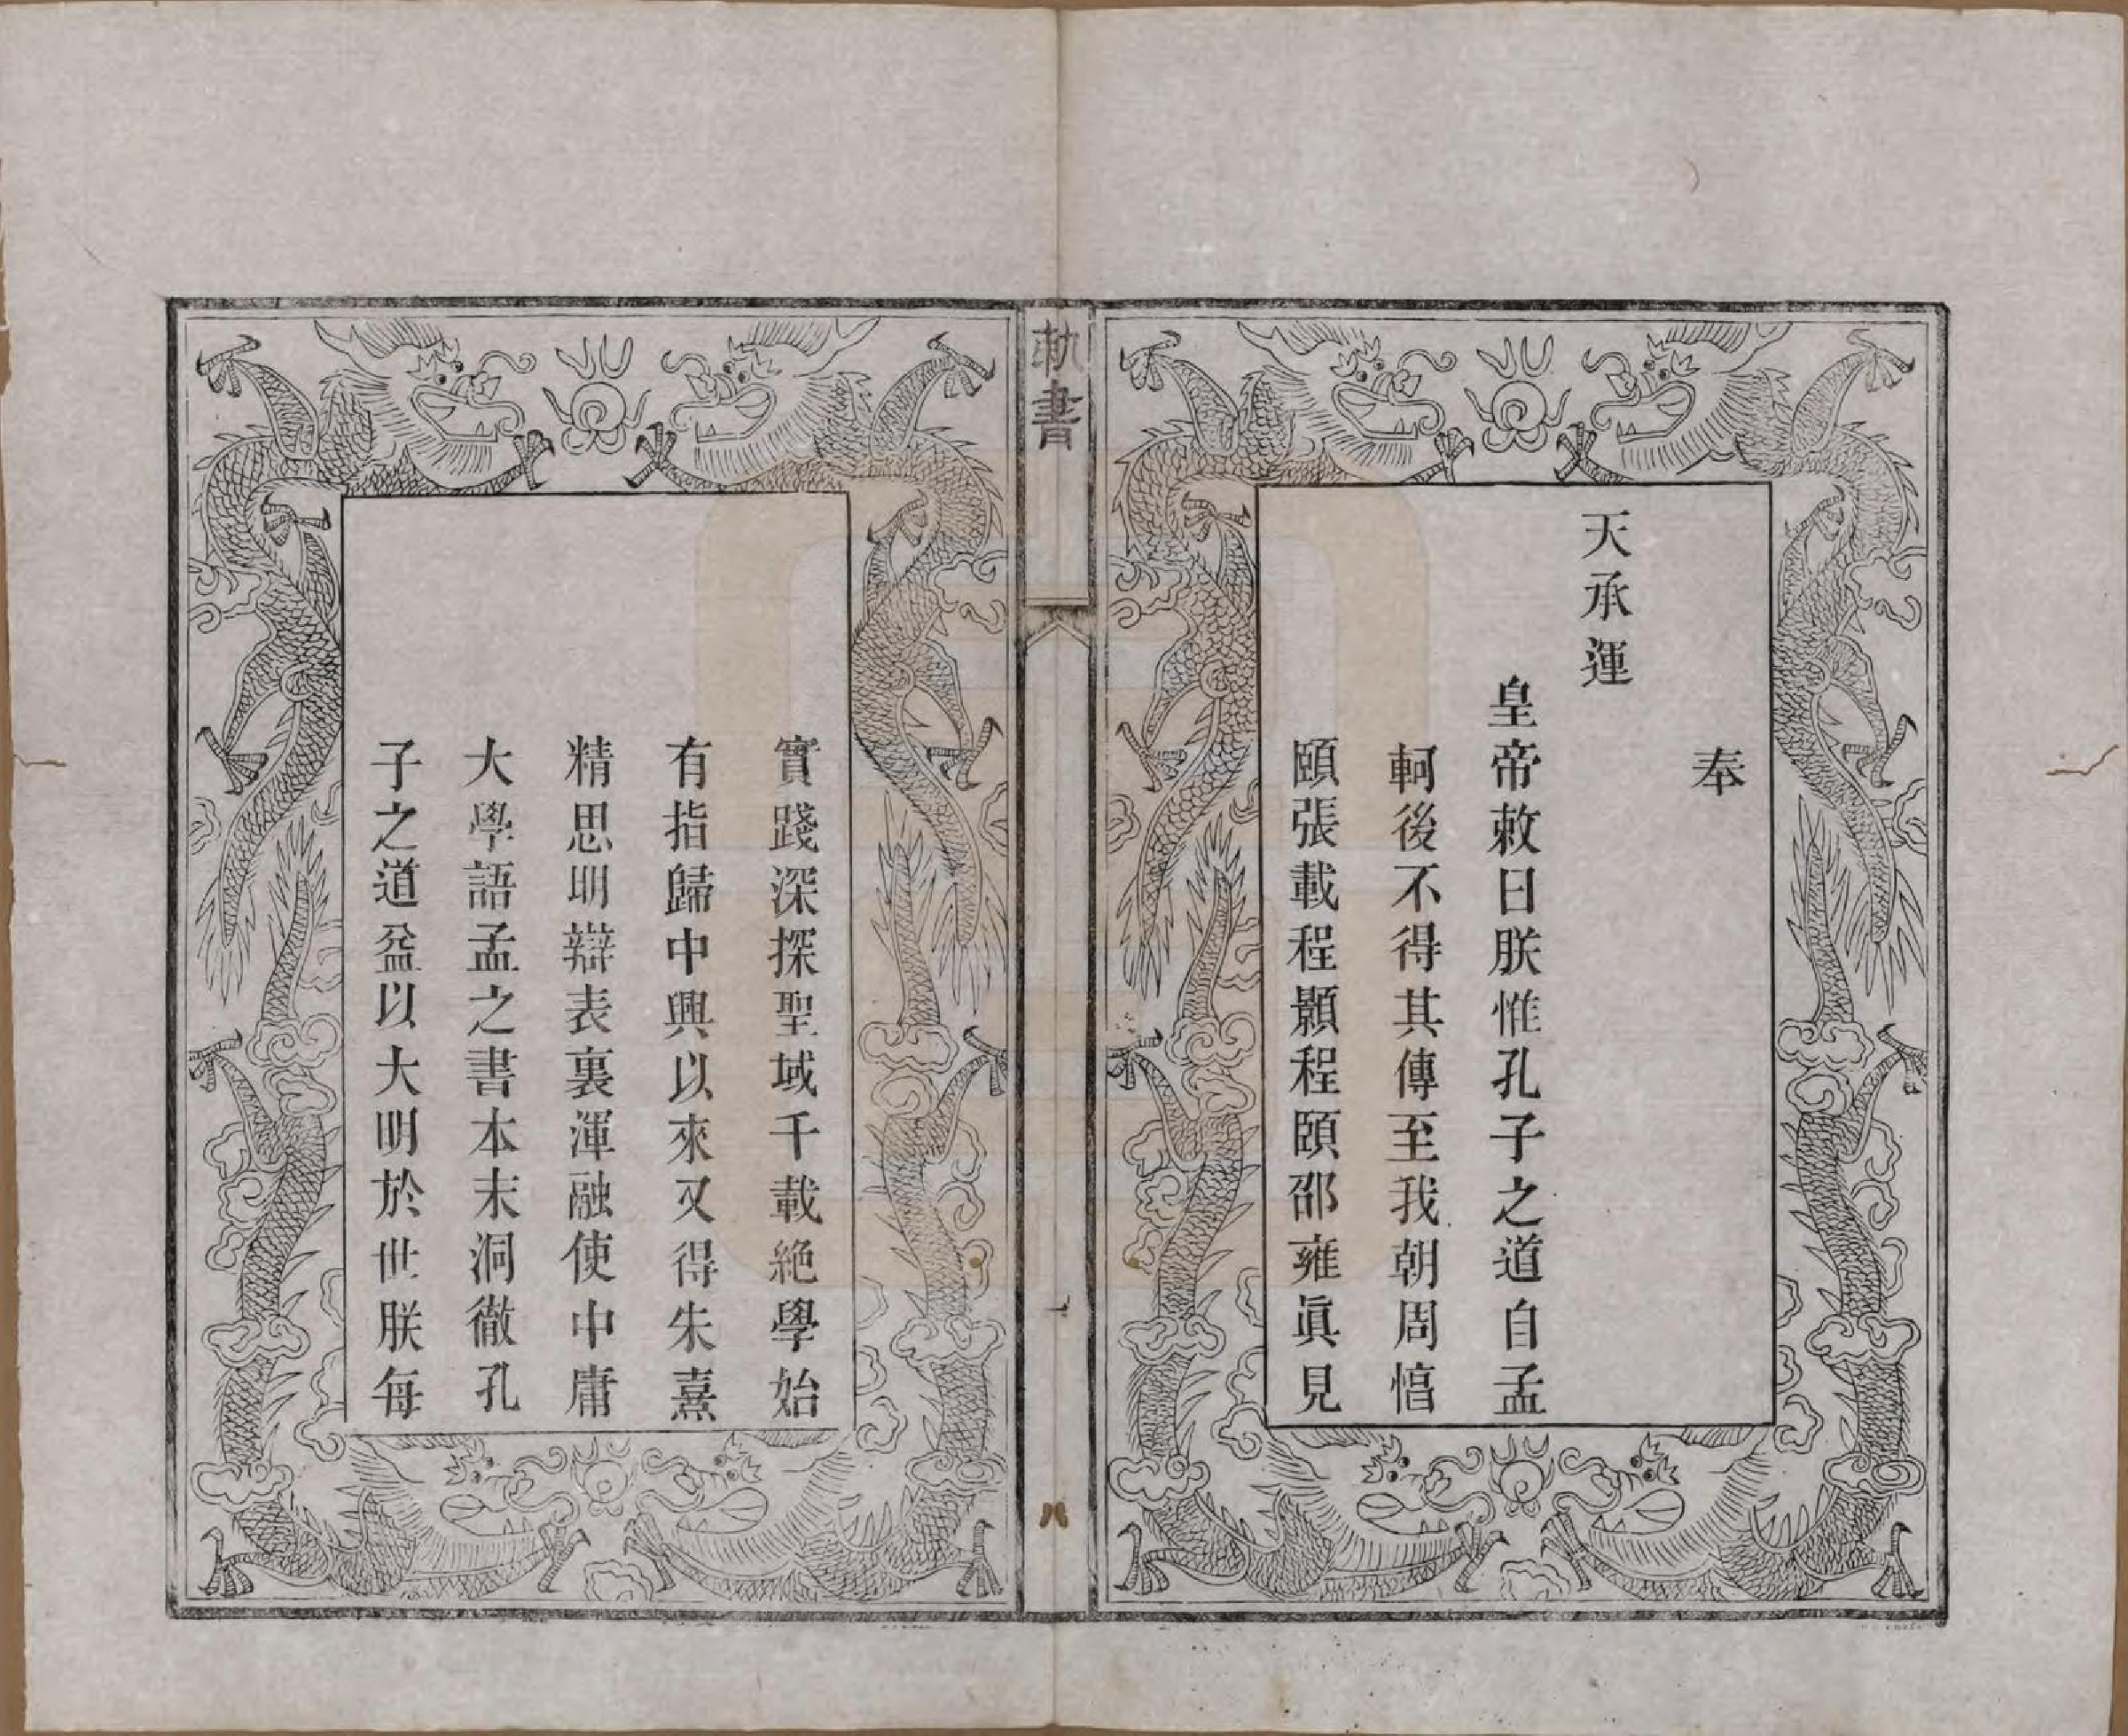 奉
天承運
皇帝敕曰朕惟孔子之道自孟
軻後不得其傳至我朝周惇
頤張載程顥程頤邵雍眞見
勅書
一
八
實踐深探聖域千載絶學始
有指歸中興以來又得朱熹
精思明辯表裏渾融使中庸
大學語孟之書本末洞徹孔
子之道益以大明於世朕每